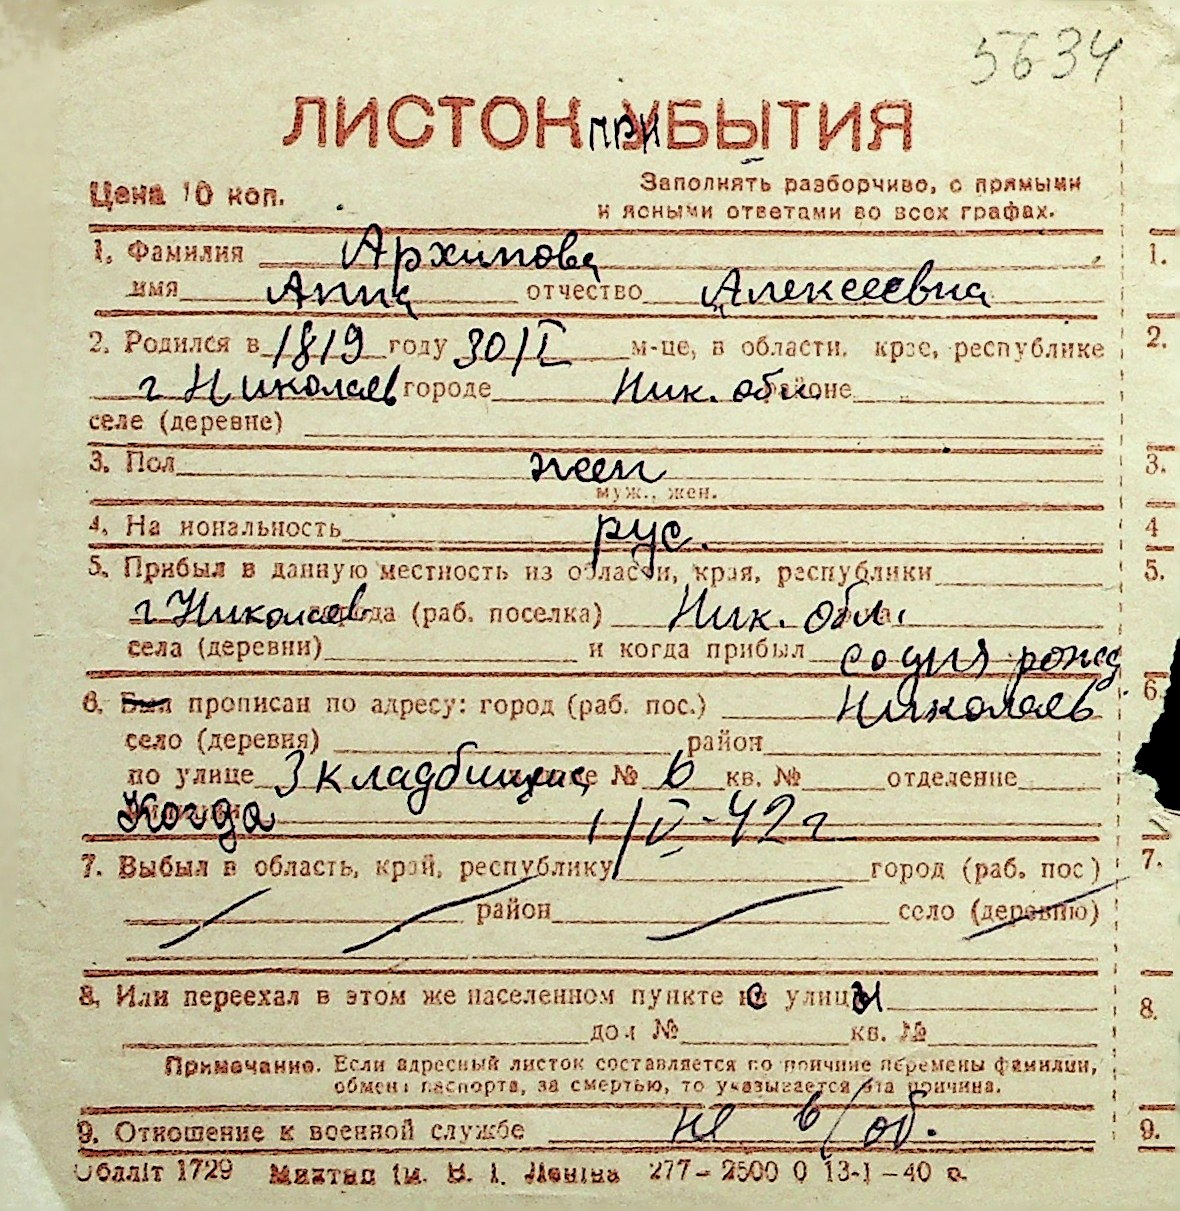 5634
ЛИСТОК ПРИБЫТИЯ
Цена 10 коп.
Заполнять разборчиво, с прямыми
и ясными ответами во всех графах.
1. Фамилия Архипова 1.
имя Анна отчество Алексеевна
2. Родился в 1819 году 30/I м-це, в области, крае, республике 2.
г Николаев городе Ник. обл. районе
селе (деревне)
3. Пол жен 3.
муж., жен.
4. Национальность рус. 4
5. Прибыл в данную местность из области, края, республики 5.
г Николаев города (раб. поселка) Ник. обл.
села (деревни) и когда прибыл со дня рожд
6. Был прописан по адресу: город (раб. пос.) Николаев 6.
село (деревня) район
по улице 3 кладбищ № 6 кв. № отделение
Когда 1/V-42 г
7. Выбыл в область, край, республику город (раб. пос) 7.
район село (деревню)
8. Или переехал в этом же населенном пункте с улицы 8.
дом № кв. №
Примечание. Если адресный листок составляется по причине перемены фамилии,
обмена паспорта, за смертью, то указывается эта причина.
9. Отношение к военной службе не в/об. 9.
Обллiт 1729 iм. В. I. Ленiна 277-2500 0 13-I-40 р.